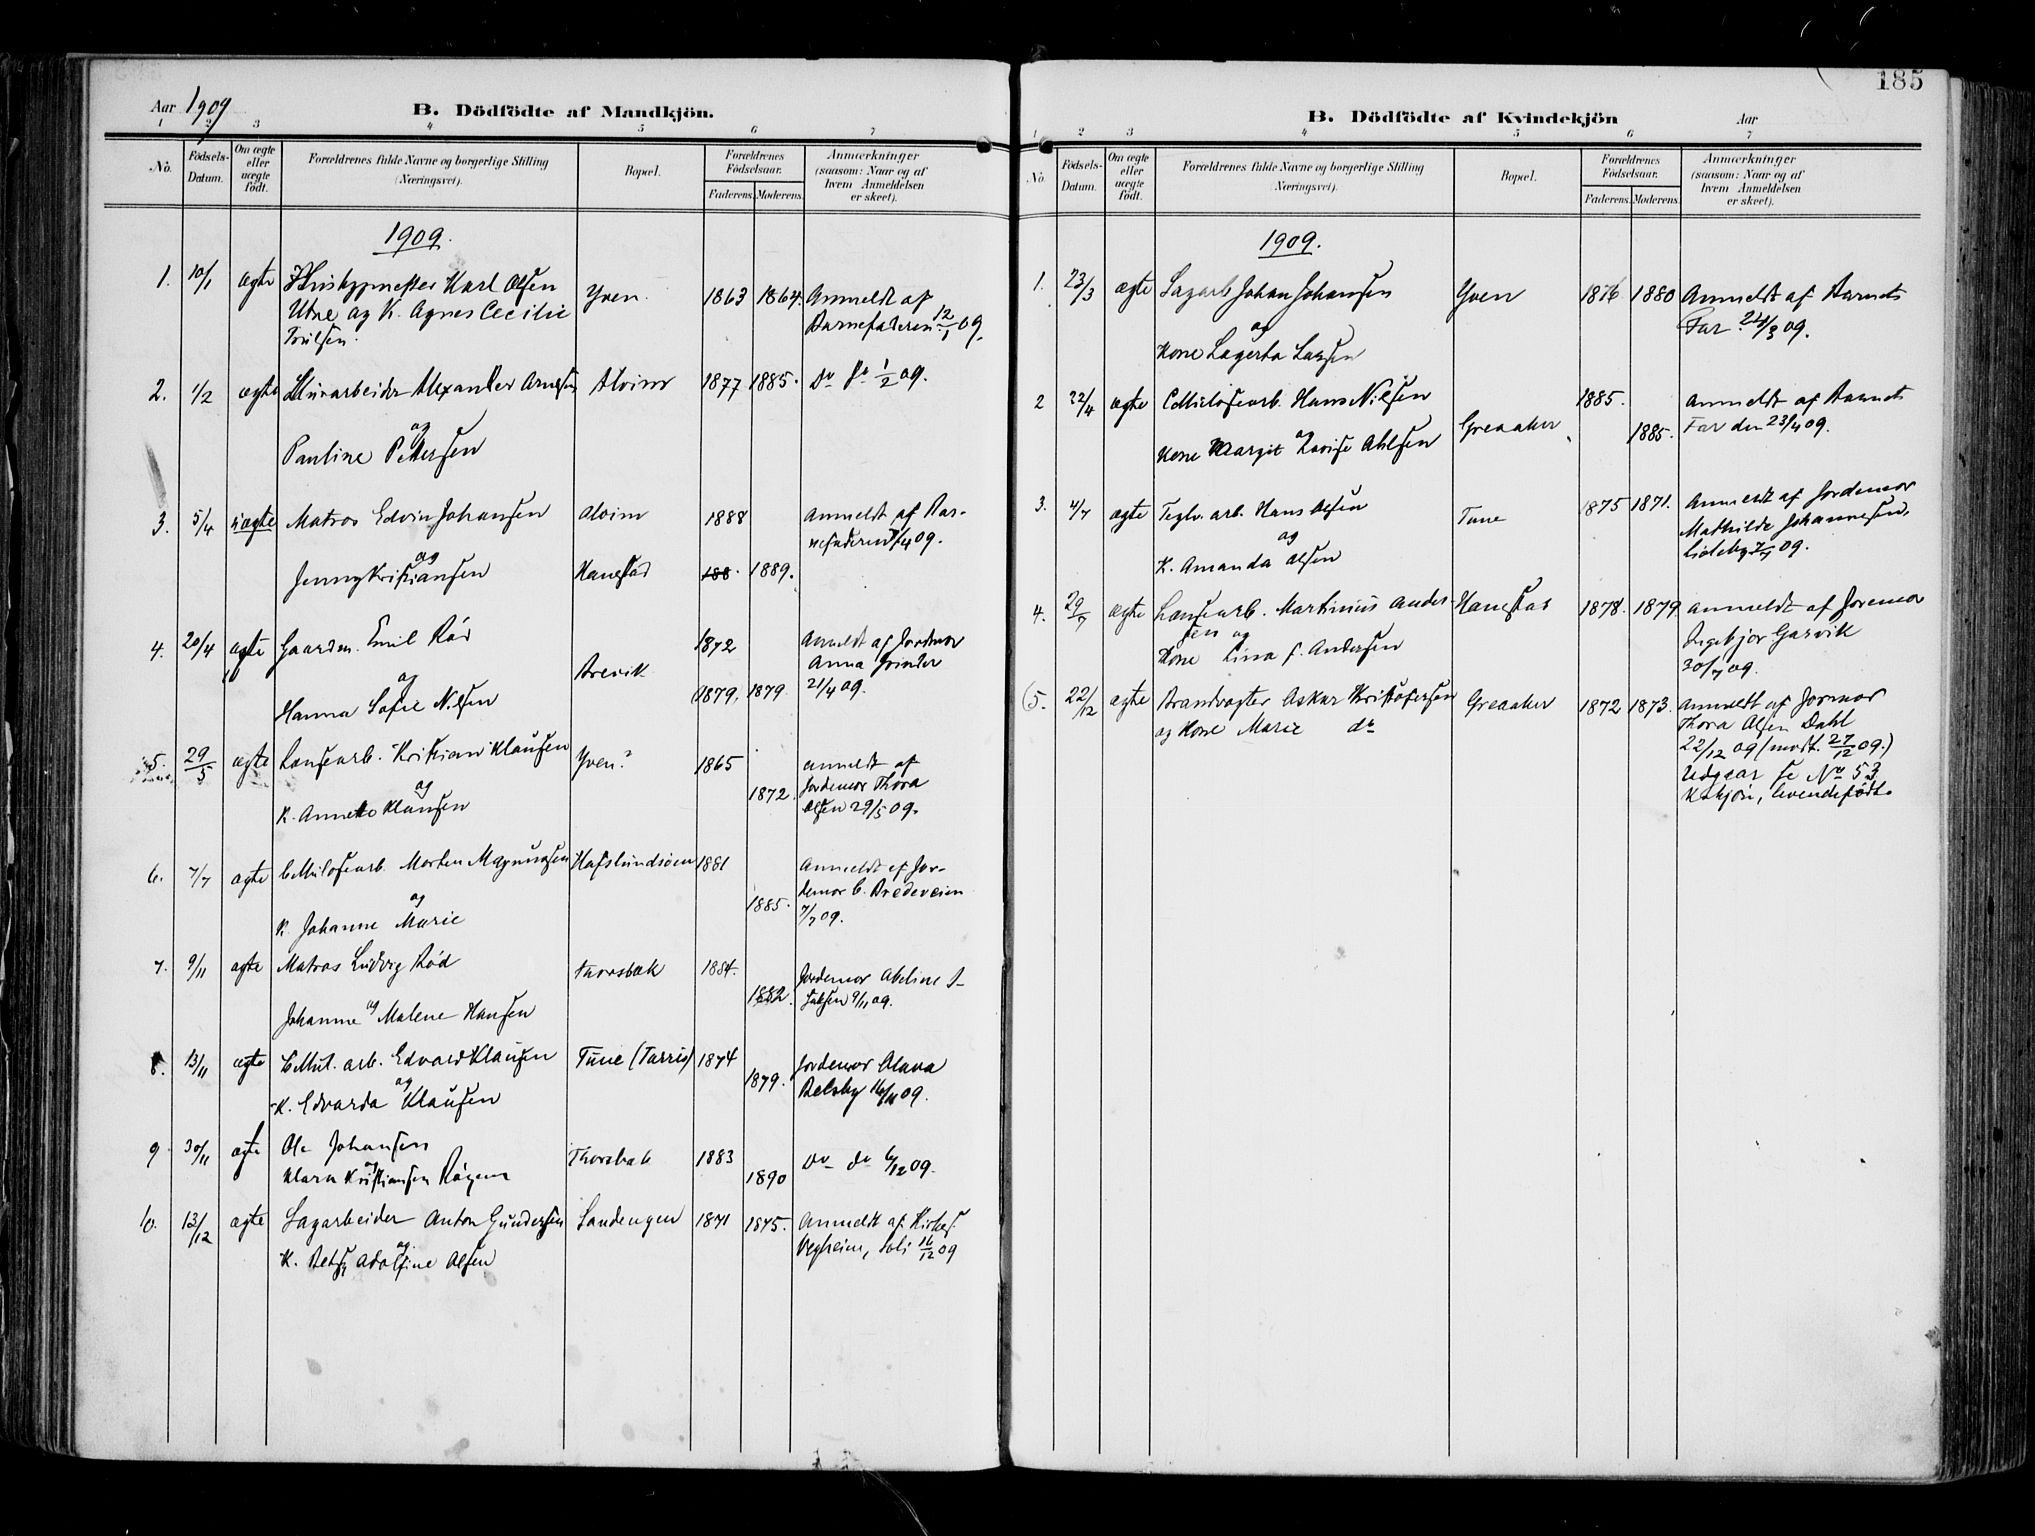 185
Aar 1909
B. Dödfödte af Mandkjön.
1 2 3 4 5 6 7
No.
Födsels-
Datum.
Om ægte
eller
uægte
födt.
Forældrenes fulde Navne og borgerlige Stilling
(Næringsvei).
Bopæl.
Forældrenes
Födselsaar.
Faderens. Moderens.
Anmærkninger
(saasom: Naar og af
hvem Anmeldelsen
er skeet).
1909.
1. 10/1 ægte Karl Olsen
Utne og K. Agnes Cecilie
Yven. 1863 1864. Anmeldt af
Barnefaderen 12/1 09.
2. 1/2 ægte Murarbeider Alexander Arnesen
og
Pauline Pettersen
Alvim 1877 1885. Do Do 1/2 09.
3. 5/4 uægte Matros Edvin Johansen
og
Jenny Kristiansen
Alvim 1888
Hanestad 188 1889.
Anmeldt af Bar-
nefaderen 7/4 09.
4. 20/4 ægte Gaardm. Emil Röd
og
Hanna Sofie Nilsen
Brevik 1872
1879, 1879
Anmeldt af Jordmor
Anna Grinder
21/4 09.
5. 29/5 ægte Lensearb. Kristian Klausen
og
K. Annette Klausen
Yven? 1865
1872.
Anmeldt af
Jordemor Thora
Olsen 29/5 09.
6. 7/7 ægte Cellulosearb. Morten Magnussen
og
K. Johanne Marie
Hafslundsöen 1881
1885.
Anmeldt af Jor-
demor C. Bredeveien
7/7 09.
7. 9/11 ægte Matros Ludvig Röd
og
Johanne Malene Hansen
Thorsbæk 1884.
1882.
Jordemor Abeline I-
saksen 9/11 09.
8. 13/11 ægte Cellul. arb. Edvard Klausen
og
K. Edvarda Klausen
Tune (Tarris) 1874
1879.
Jordemor Olava
Delsby 16/11 09.
9. 30/11 ægte Ole Johansen
og
Klara Kristiansen
Thorsbæk 1883
1890
Do do 6/12 09.
10. 13/12 ægte Sagarbeider Anton Gundersen
og
K. Betsy Adolfine Olsen
Sandengen 1871 1875.
Anmeldt af Kirkes.
Vegheim, Soli 16/12 09
B. Dödfödte af Kvindekjön
Aar
1 2 3 4 5 6 7
No.
Födsels-
Datum.
Om ægte
eller
uægte
födt.
Forældrenes fulde Navne og borgerlige Stilling
(Næringsvei).
Bopæl.
Forældrenes
Födselsaar.
Faderens. Moderens.
Anmærkninger
(saasom: Naar og af
hvem Anmeldelsen
er skeet).
1909.
1. 23/3 ægte Sagarb. Johan Johansen
og
Kone Lagerta Larsen
Yven 1876 1880 Anmeldt af Barnets
Far 24/3 09.
2 22/4 ægte Cellulosearb. Hans Nilsen
og
Kone Margit Lovise Ahlsen
Greaaker
1885.
1885.
Anmeldt af Barnets
Far den 23/4 09.
3. 4/7 ægte Teglv. arb. Hans Olsen
og
K. Amanda Olsen
Tune 1875 1871.
Anmeldt af Jordemor
Mathilde Johannesen,
Lideby 7/7 09.
4. 29/7 ægte Lensearb. Martinius Ander-
sen og
Kone Lina f. Andersen
Hanestad 1878. 1879
Anmeldt af Joremor
Ingebjor Garvik
30/7 09.
(5. 22/12 ægte Brandvagter Oskar Kristofersen
og Kone Marie do
Greaaker 1872 1873.
Anmeldt af Jormor
Thora Olsen Dahl
22/12 09 (modt. 27/12 09.)
Udgaar se No 53
Kvkjön, levendefödte